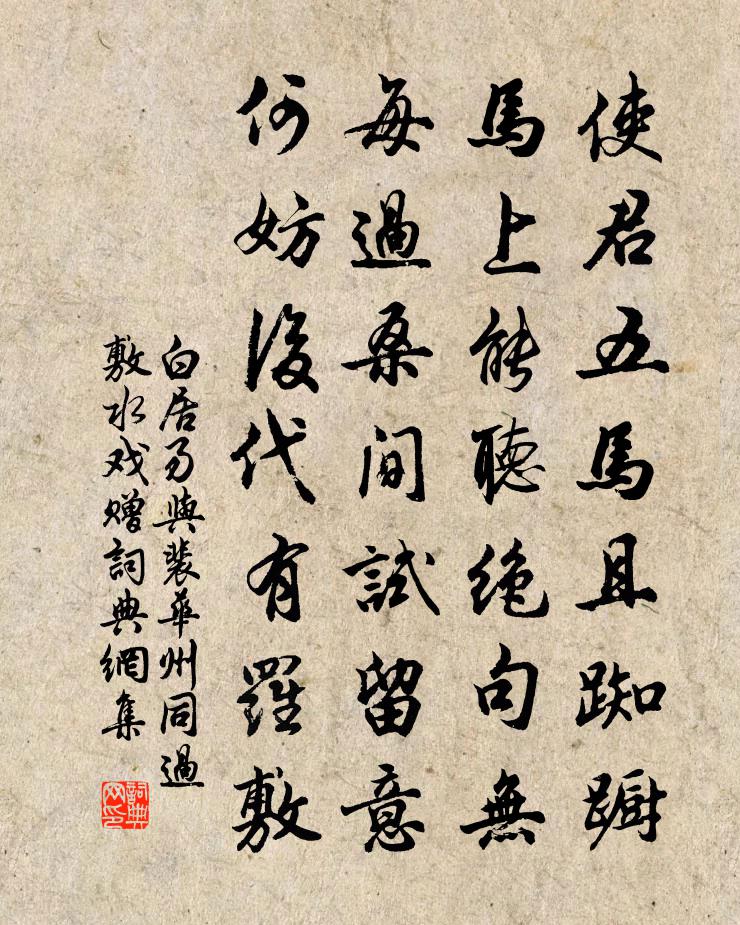 使君五馬且踟蹰
馬上能聽絶句無
每過桑間試留意
何妨後代有羅敷
白居易與裴華州同過
敷水戏赠詞典網集
詞典
网印